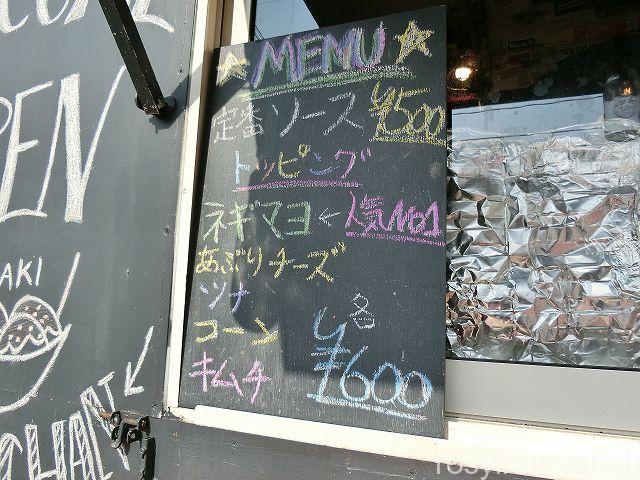 PEN
AKI
MENU
定番 ソース ¥500
トッピング
ネギマヨ ← 人気No1
あぶりチーズ
ツナ
コーン
キムチ
各
¥600